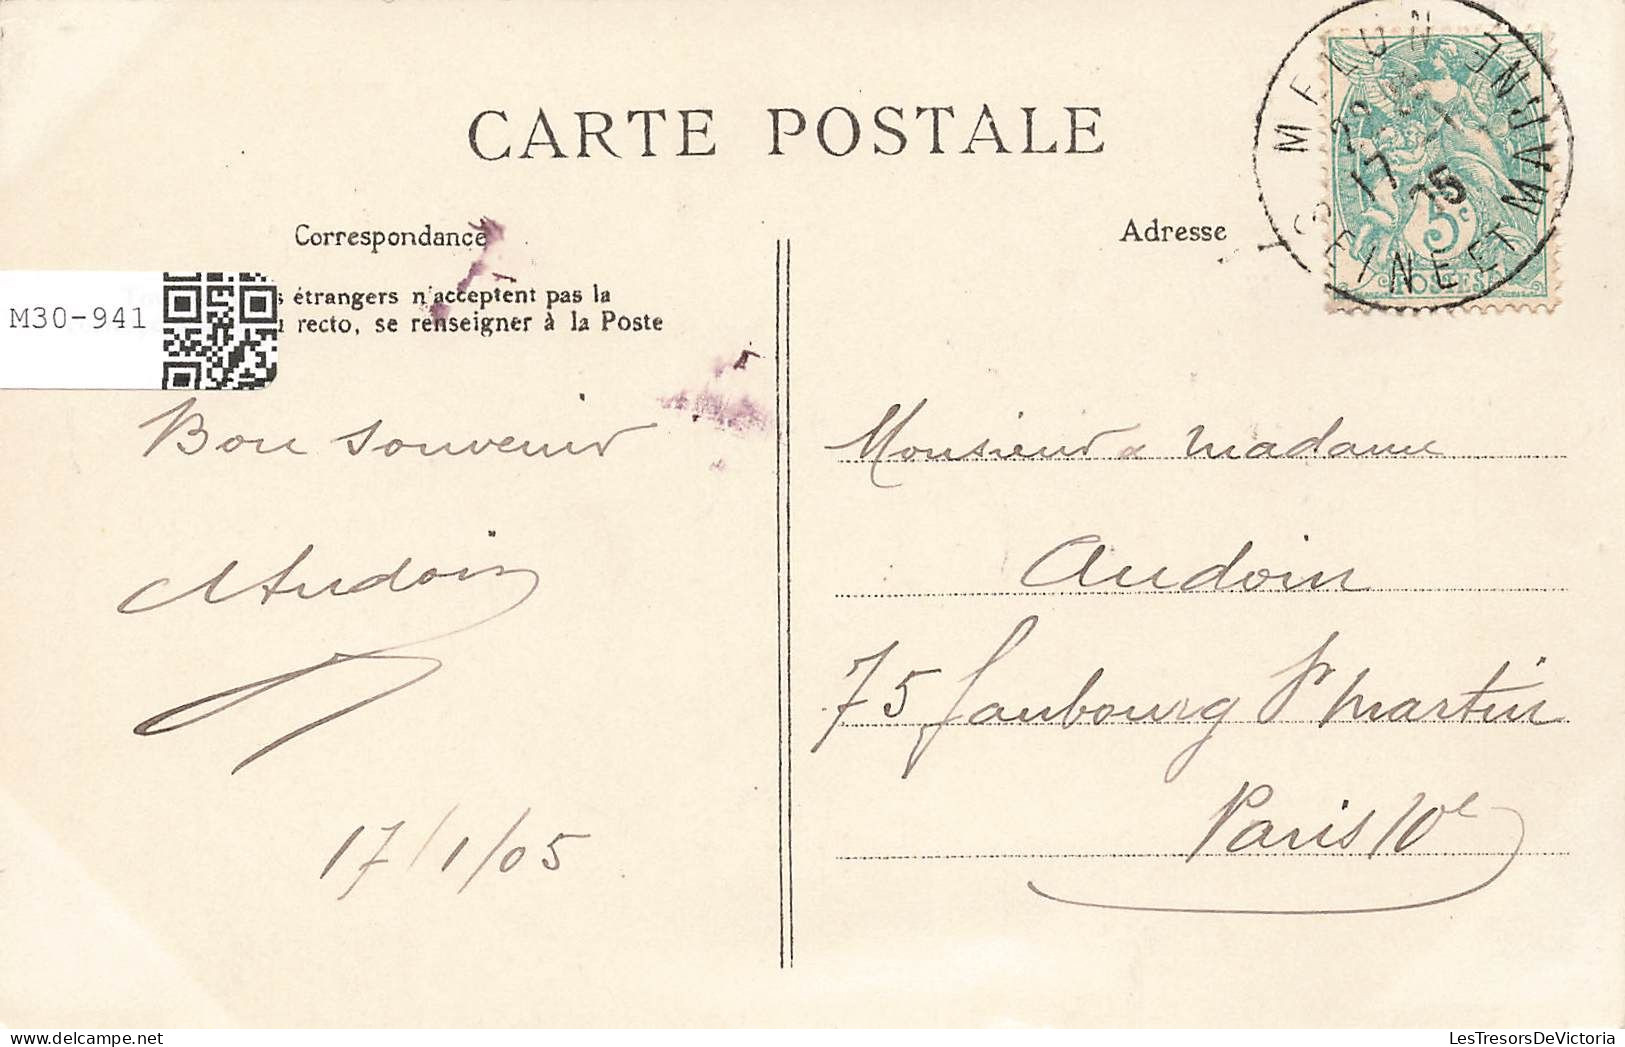 CARTE POSTALE
MELUN
SEINE ET MARNE
17
05
5c
POSTES
Correspondance
Adresse
étrangers n'acceptent pas la
recto, se renseigner à la Poste
M30-941
Bon souvenir
Audoin
17/1/05
Monsieur & Madame
Audoin
75 faubourg St Martin
Paris 10e
LesTresorsDeVictoria